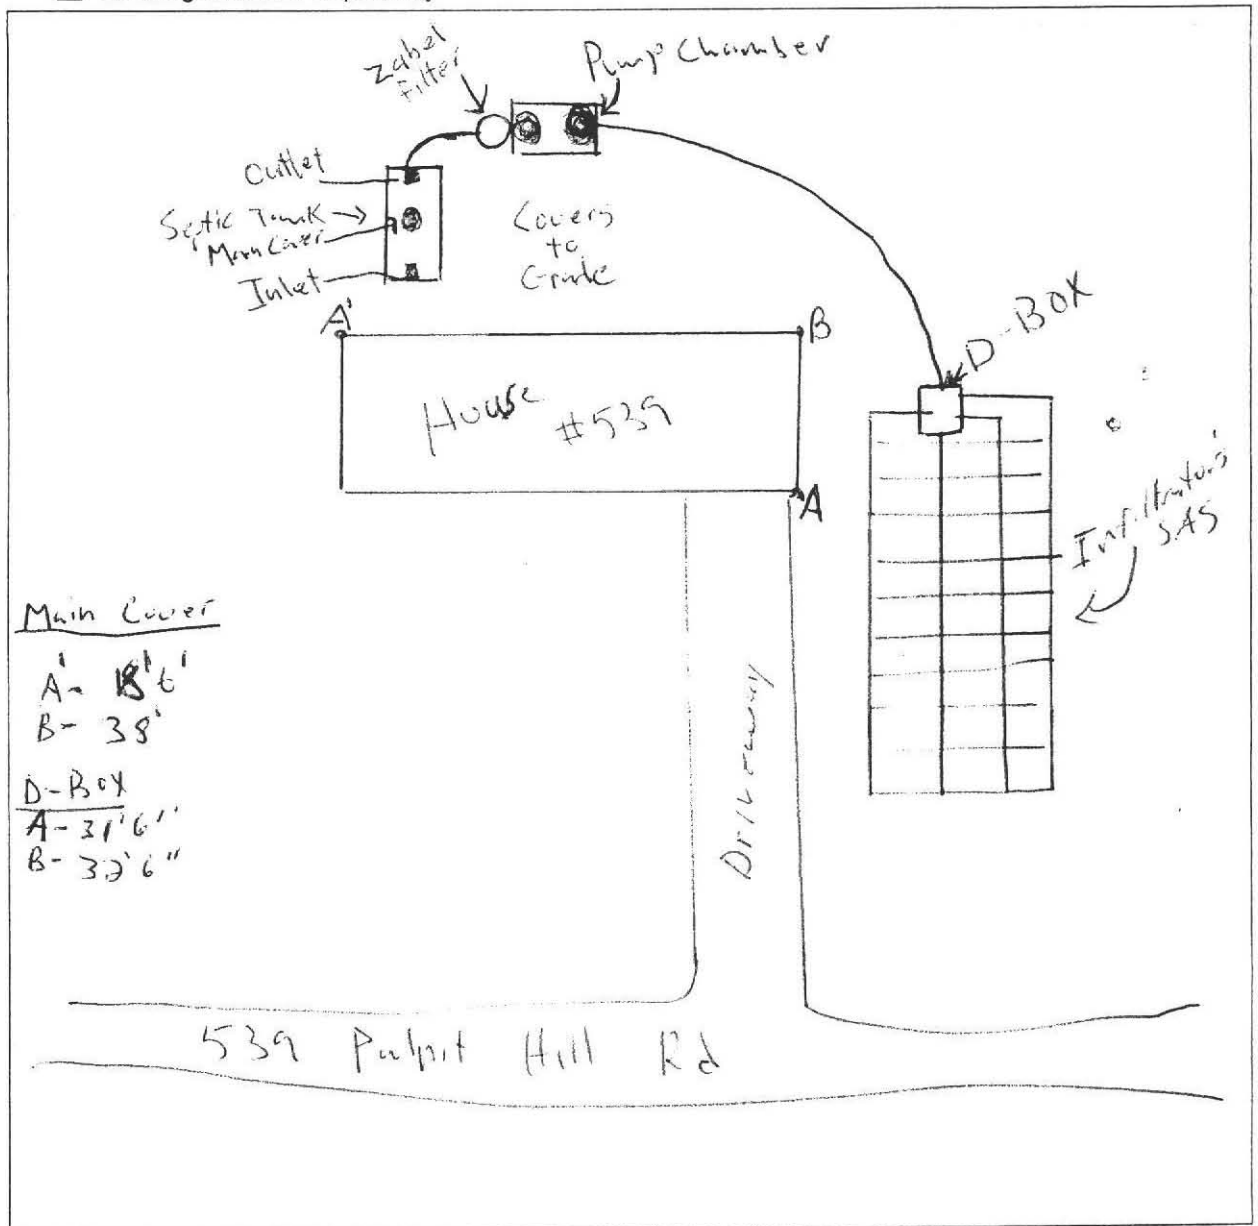 Zabel
Filter
Pump Chamber
Outlet
Septic Tank
Main Cover
Inlet
Covers
to
Grade
A'
B
D-BOX
House
#539
A
Infiltrators
SAS
Main Cover
A'- 18'6'
B- 38'
D-Box
A- 31'6"
B- 32'6"
Driveway
539 Pulpit Hill Rd